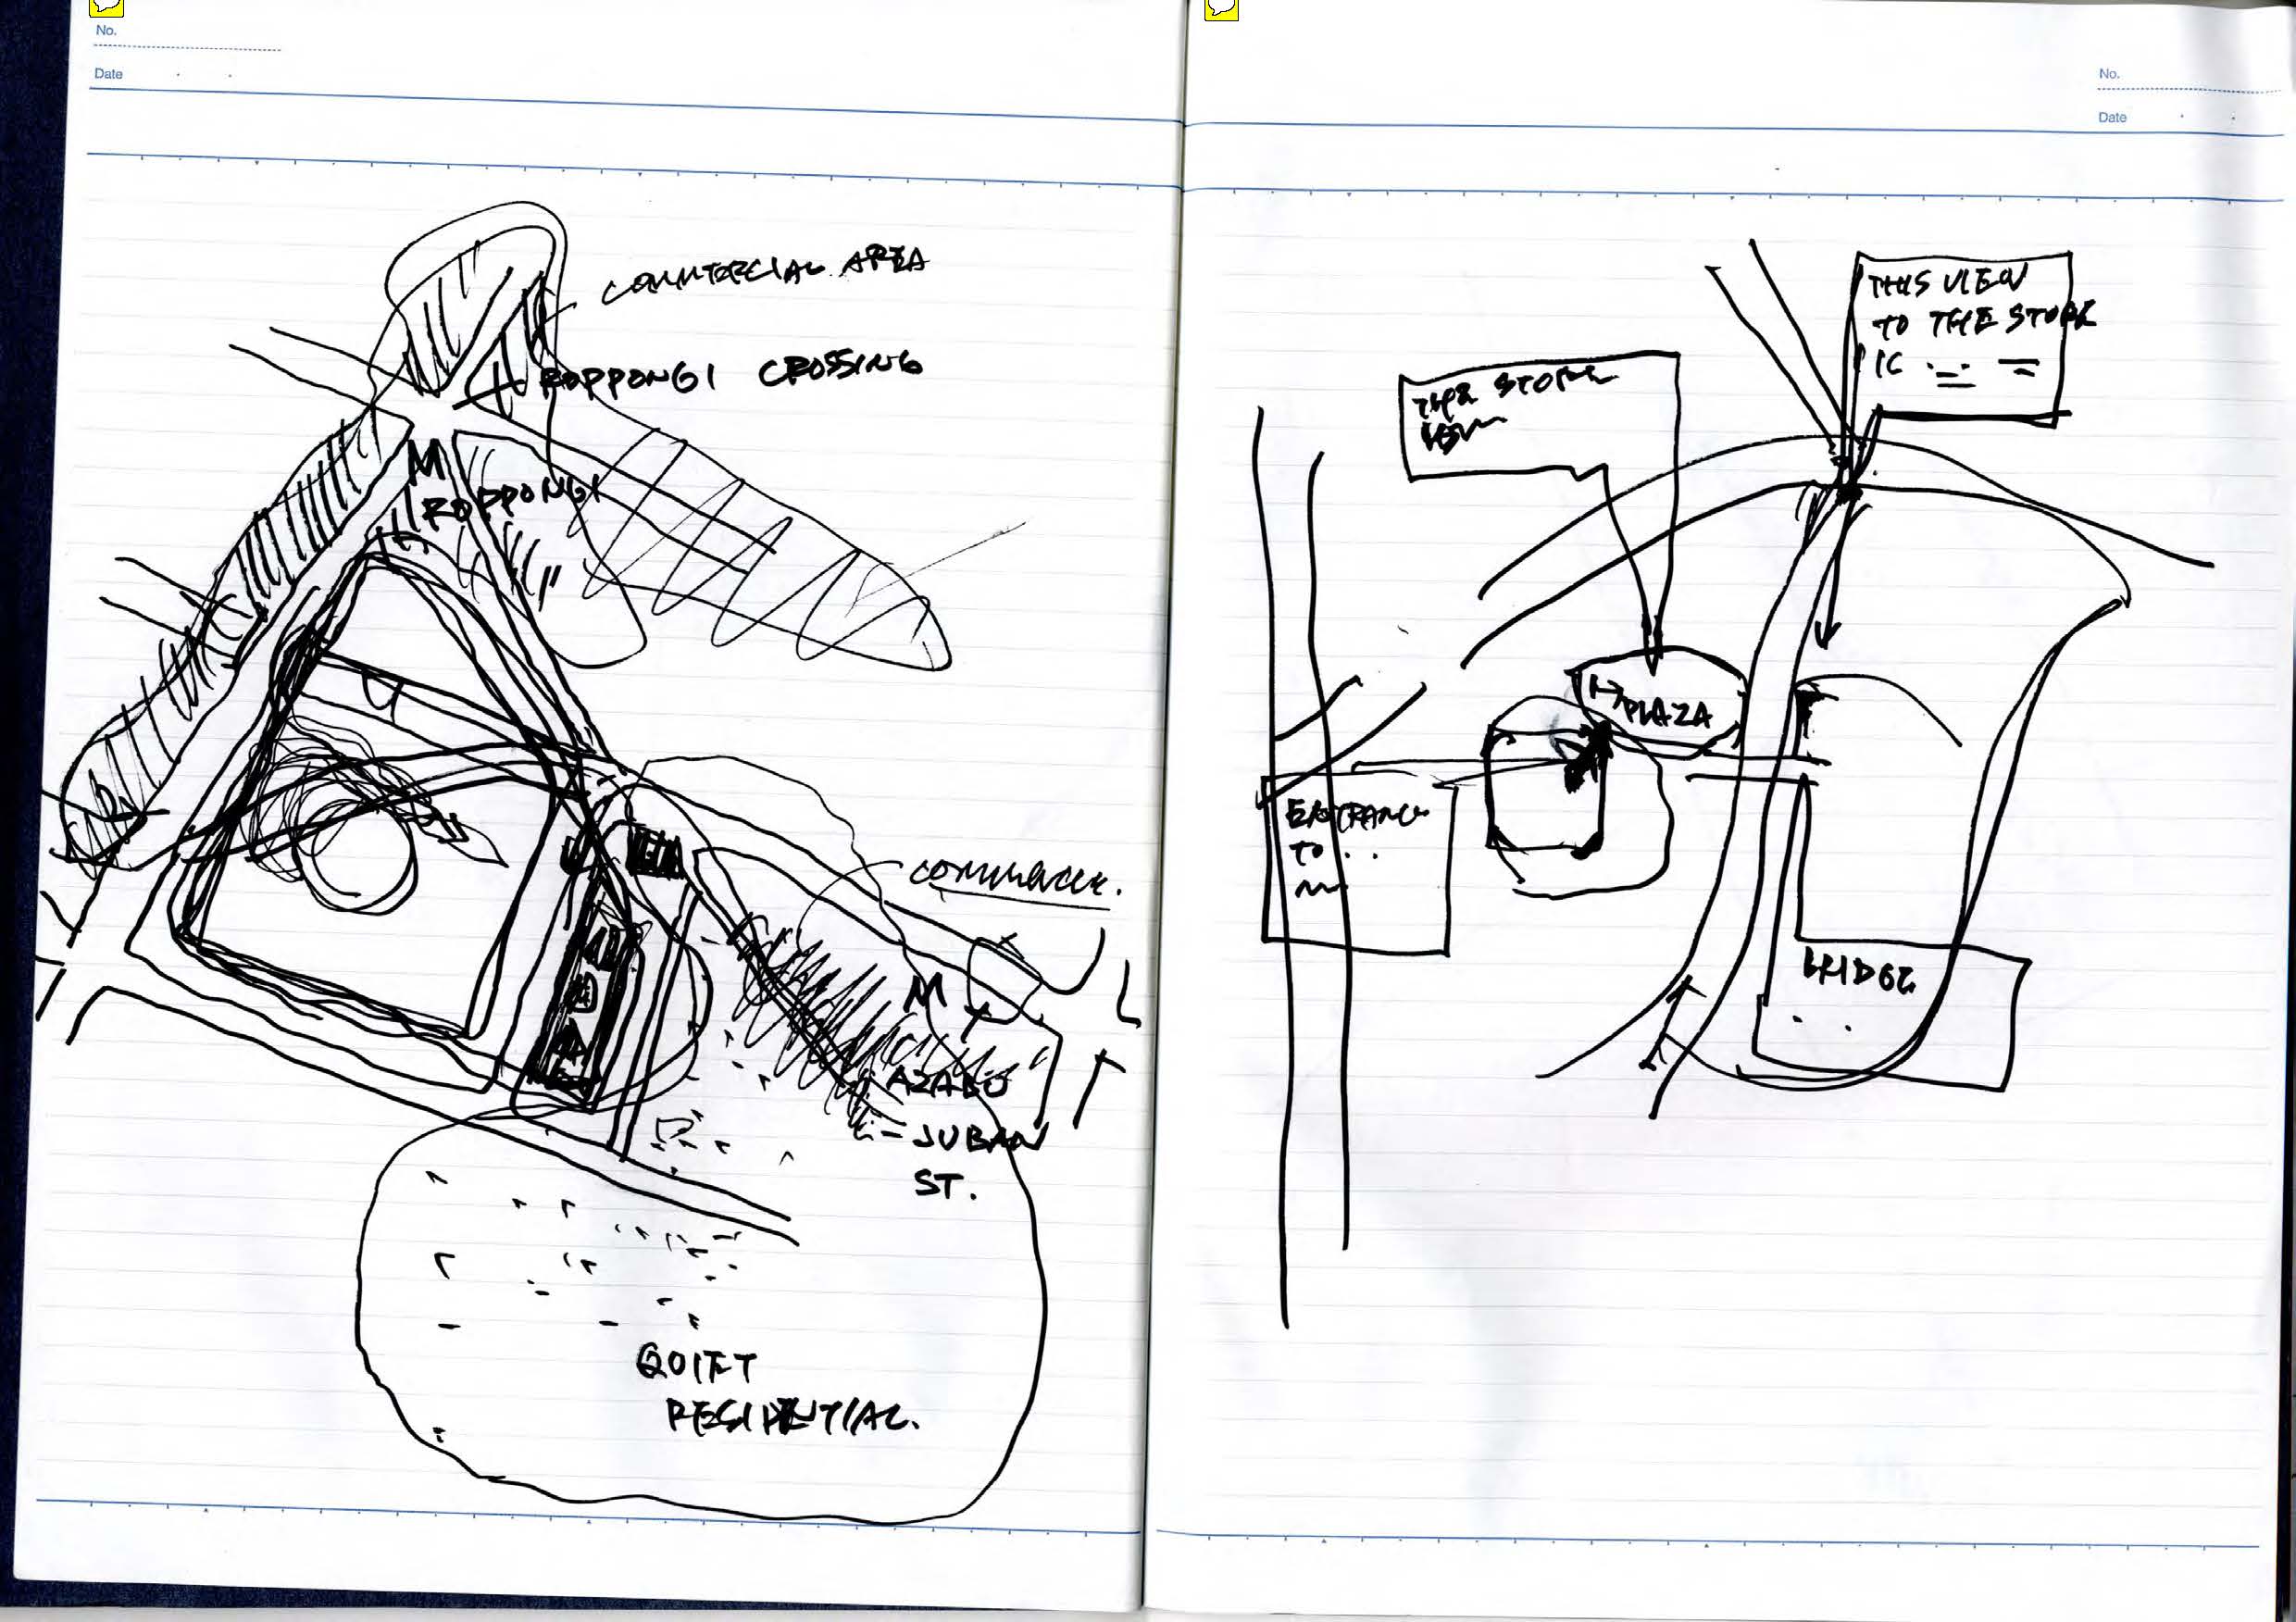 No.
Date
COMMERCIAL AREA
ROPPONGI CROSSING
M
ROPPONGI
COMMERCE.
M
AZABU
JUBAN
ST.
QUIET
RESIDENTIAL.
No.
Date
THIS VIEW
TO THE STORE
THE STORE
PLAZA
ENTRANCE
TO . .
BRIDGE